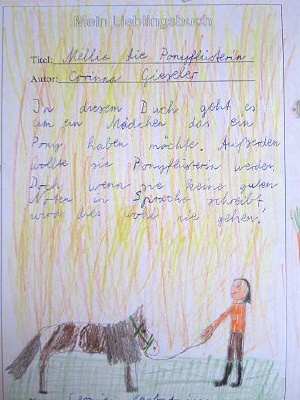 Mein Lieblingsbuch
Titel: Mellie die Ponyflüsterin
Autor: Corinna Gieseler
In diesem Buch geht es
um ein Mädchen das ein
Pony haben möchte. Außerdem
wollte sie Ponyflüsterin werden.
Doch wenn sie keine guten
Noten in Sprache schreibt
wird dies wohl nie gehen!